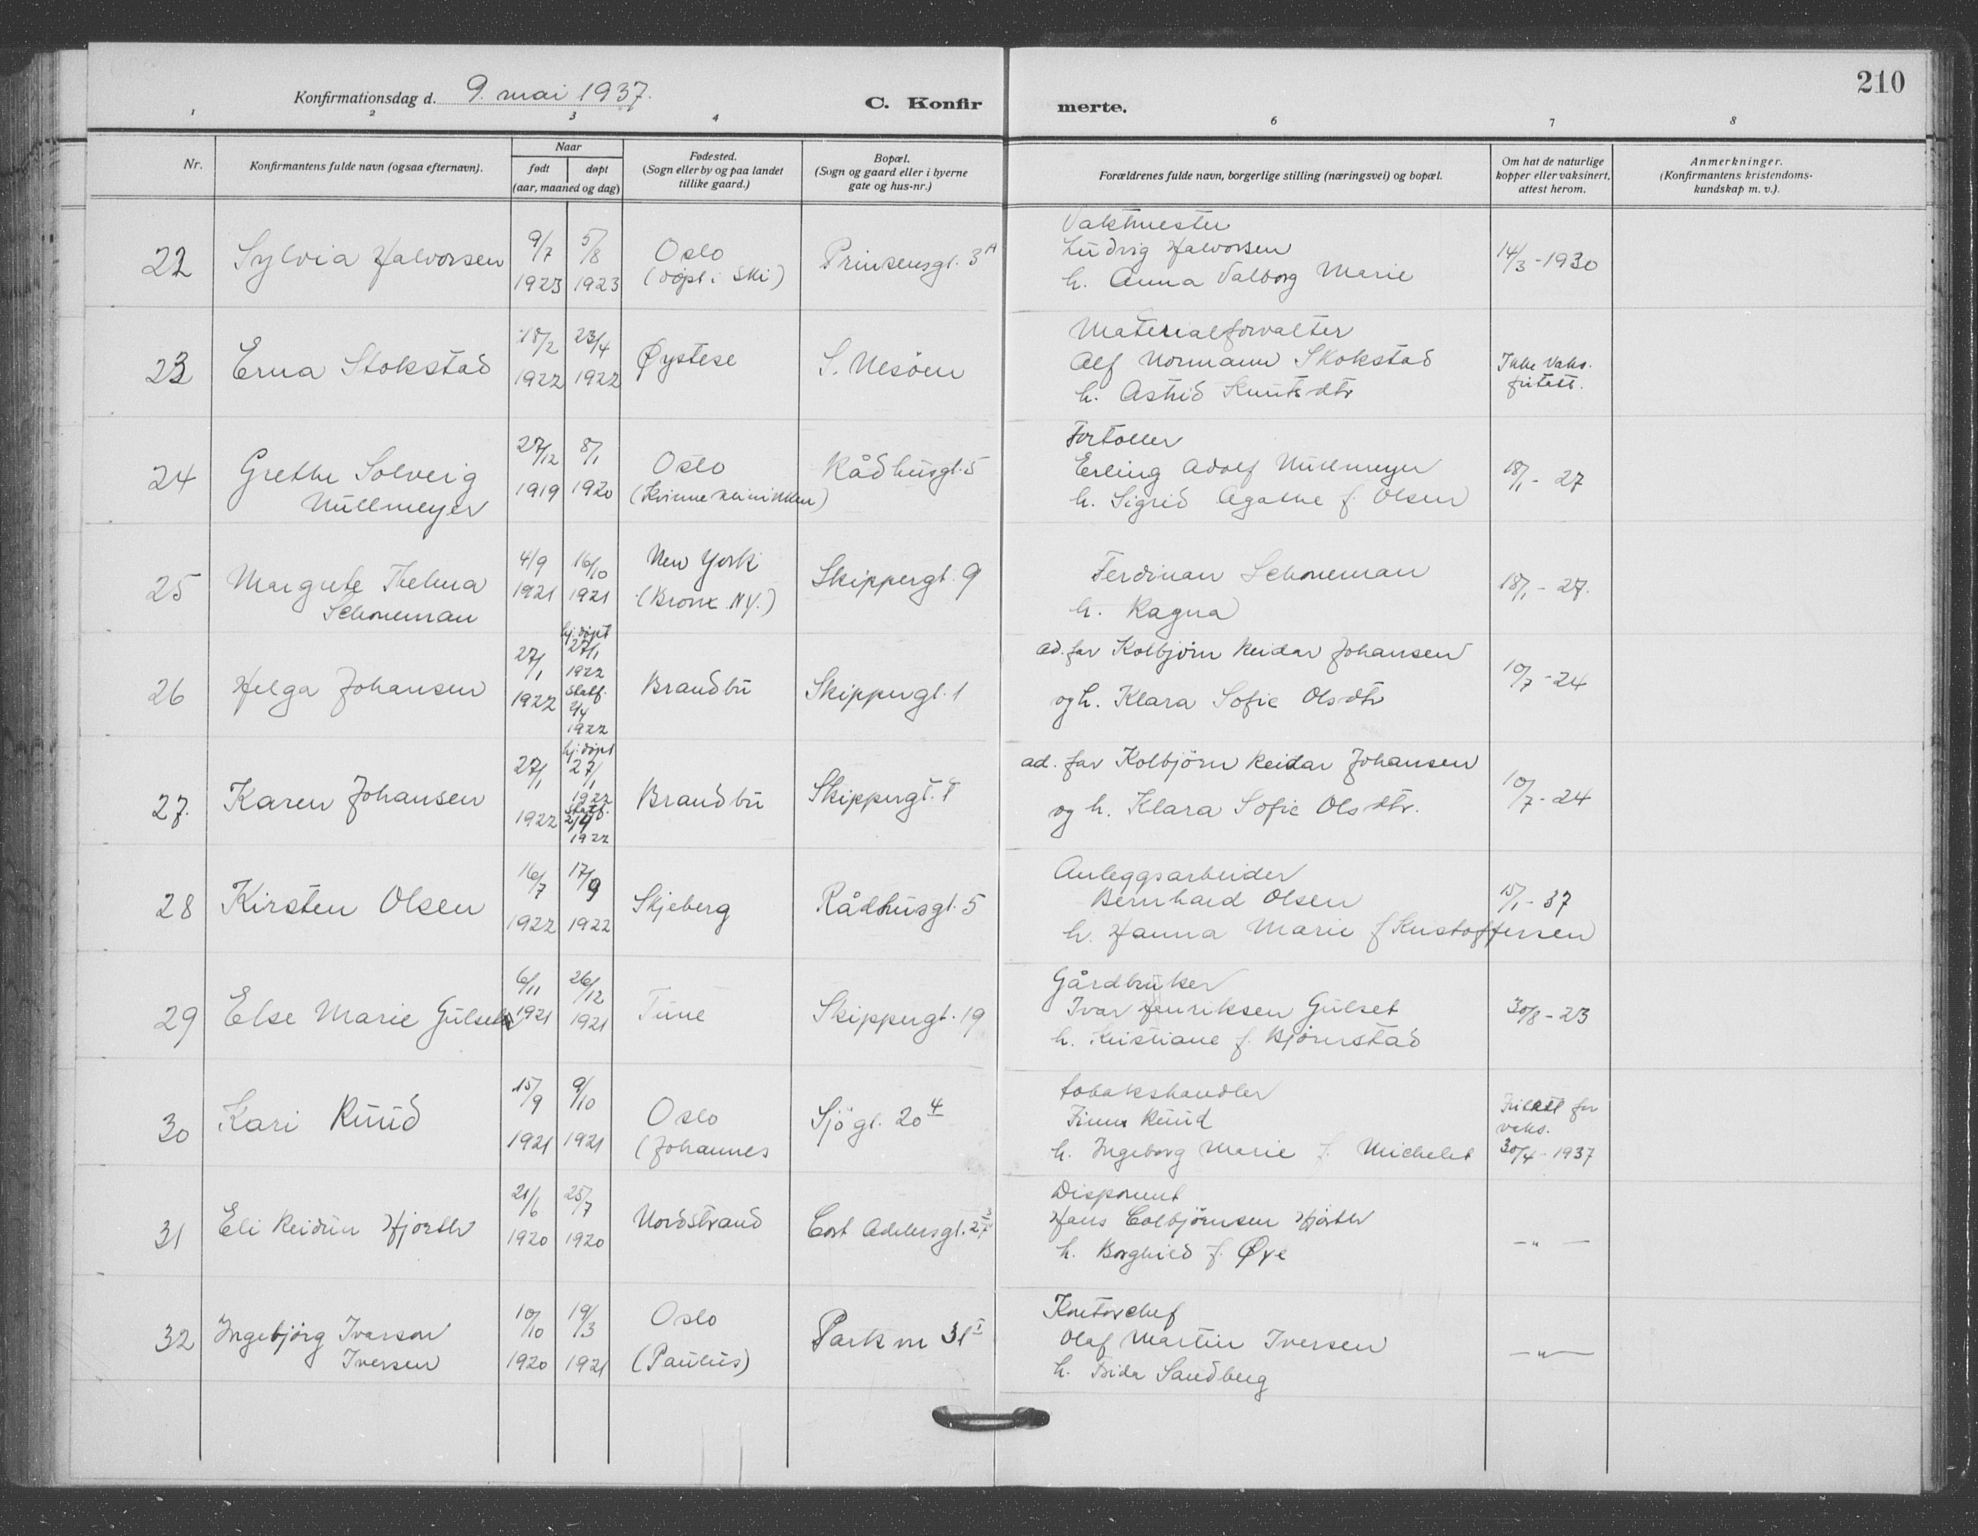 210
Konfirmationsdag d. 9. mai 1937.
C. Konfir merte.
1 2 3 4 6 7 8
Nr.
Konfirmantens fulde navn (ogsaa efternavn).
Naar
født døpt
(aar, maaned og dag)
Fødested.
(Sogn eller by og paa landet
tillike gaard.)
Bopæl.
(Sogn og gaard eller i byerne
gate og hus-nr.)
Forældrenes fulde navn, borgerlige stilling (næringsvei) og bopæl.
Om hat de naturlige
kopper eller vaksinert,
attest herom.
Anmerkninger.
(Konfirmantens kristendoms-
kundskap m. v.).
22 Sylvia Halvorsen
9/7 1923
5/8 1923
Oslo
(döpt i Ski)
Prinsensgt. 3A
Vaktmester
Ludvig Halvorsen
h. Anna Valborg Marie
14/3-1930
23 Erna Stokstad
18/2 1922
23/4 1922
Øystese
S. Nesöen
Materialforvalter
Alf Normann Skokstad
h. Astrid Knutsdtr
Ikke vaks.
fritatt.
24 Grethe Solveig
Nullmeyer
27/12 1919
8/1 1920
Oslo
(Kvinneklinikken)
Rådhusgt. 5
Fortoller
Erling Adolf Nullmeyer
h. Sigrid Agathe f. Olsen
18/1 - 27
25 Margrete Thelma
Schoneman
4/9 1921
16/10 1921
New York
(Bronx N.Y.)
Skippergt. 9
Ferdinan Schoneman
h. Ragna
18/1 - 27.
26 Helga Johansen
27/1 1922
hj. döpt
27/1
1922
statf.
2/4
1922
Brandbu
Skippergt. 1
ad. far Kolbjörn Reidar Johansen
og h. Klara Sofie Olsdtr
10/7 - 24
27. Karen Johansen
27/1 1922
hj. döpt
27/1
1922
statf.
2/4
1922
Brandbu
Skippergt. 1
ad. far Kolbjörn Reidar Johansen
og h. Klara Sofie Olsdtr.
10/7 - 24
28 Kirsten Olsen
16/7 1922
17/9 1922
Skjeberg
Rådhusgt. 5
Anleggsarbeider
Bernhard Olsen
h. Hanna Marie f Kristoffersen
15/1 - 37
29 Else Marie Gulseth
6/11 1921
26/12 1921
Tune
Skippergt. 19
Gårdbruker
Ivar Henriksen Gulset
h. Kristiane f. Bjørnstad
30/8 - 23
30 Kari Ruud
15/9 1921
9/10 1921
Oslo
(Johannes
Sjögt. 20 4
tobakshandler
Finn Ruud
h. Ingeborg Marie f. Michelet
Fritatt for
vaks.
30/4 - 1937
31 Eli Reidun Hjorth
21/6 1920
25/7 1920
Nordstrand
Cort Adelersgt. 27
Disponent
Hans Colbjørnsen Hjorth
h. Borghild f. Øye
— " —
32 Ingebjörg Ivarson
Iversen
10/10 1920
19/3 1921
Oslo
(Paulus)
Parkv 31 I
Kontorchef
Olaf Martin Iversen
h. Frida Sandberg
— " —